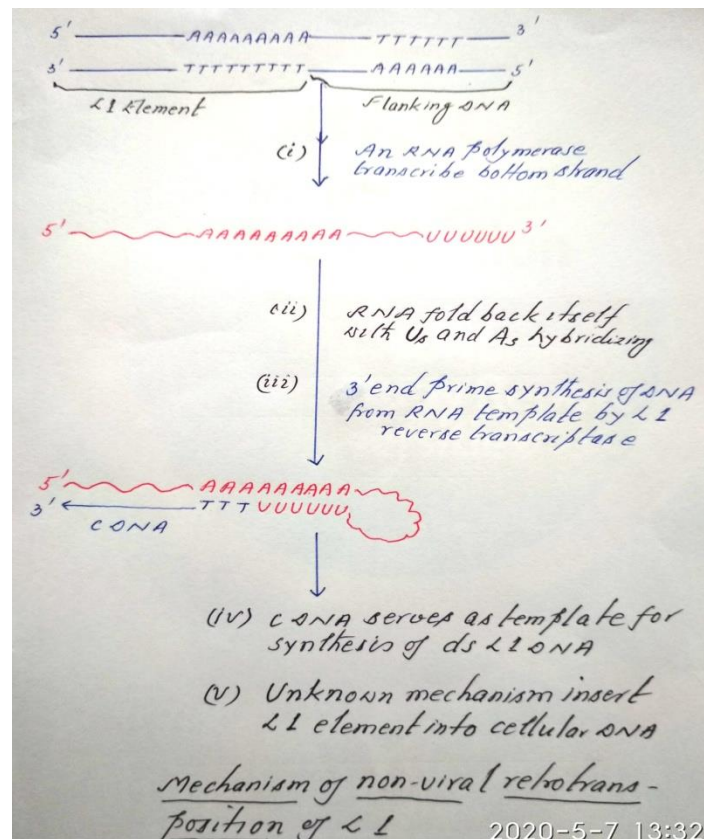 5' AAAAAAAAA TTTTTT 3'
3' TTTTTTTTT AAAAAA 5'
L1 Element Flanking DNA
(i) An RNA polymerase
transcribe bottom strand
5' AAAAAAAAA UUUUUU 3'
(ii) RNA fold back itself
with Us and As hybridizing
(iii) 3' end prime synthesis of DNA
from RNA template by L1
reverse transcriptase
5' AAAAAAAAA
3' TTTUUUUUU
CDNA
(iv) CDNA serves as template for
synthesis of ds L1 DNA
(v) Unknown mechanism insert
L1 element into cellular DNA
Mechanism of non-viral retrotrans-
position of L1
2020-5-7 13:32